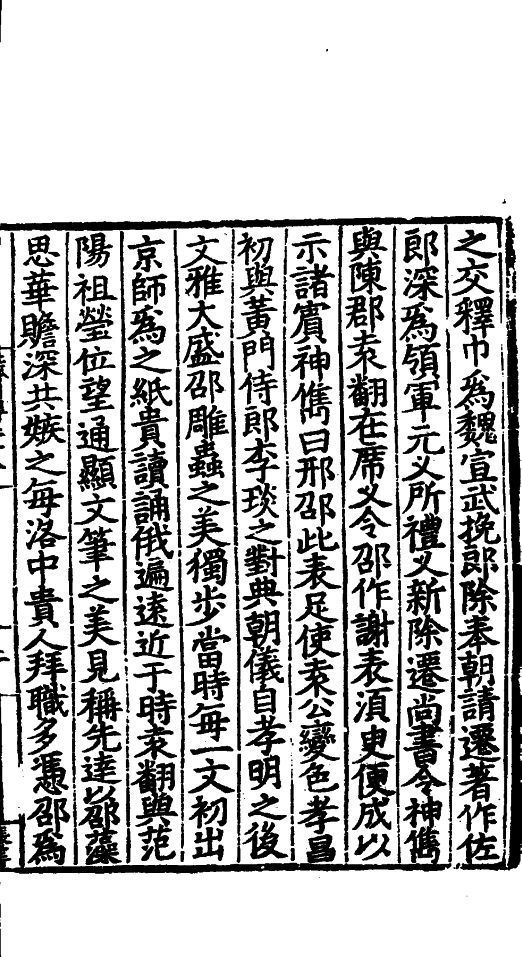 之交釋巾爲魏宣武挽郎除奉朝請遷著作佐
郎深爲領軍元乂所禮乂新除遷尚書令神儁
與陳郡袁翻在席乂令邵作謝表湏臾便成以
示諸賔神儁曰邢邵此表足使袁公變色孝昌
初與黃門侍郎李琰之對典朝儀自孝明之後
文雅大盛邵雕蟲之美獨步當時每一文初出
京師爲之紙貴讀誦俄遍遠近于時袁翻與范
陽祖瑩位望通顯文筆之美見稱先達以邵藻
思華贍深共嫉之每洛中貴人拜職多憑邵爲